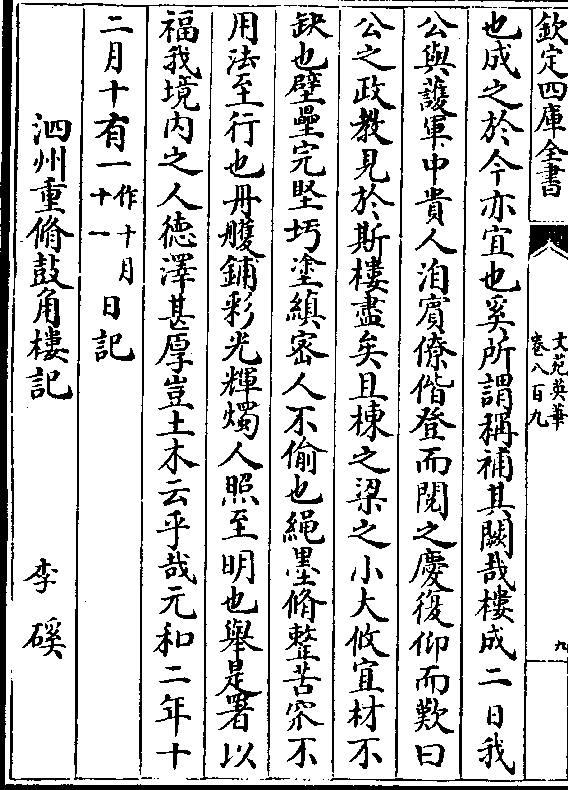 欽定四庫全書
文苑英華
卷八百九
九
也成之於今亦宜也奚所謂稱補其闕哉樓成二日我
公與護軍中貴人洎賓僚偕登而閲之慶復仰而歎曰
公之政教見於斯樓盡矣且棟之梁之小大攸宜材不
缺也壁壘完堅圬塗縝密人不偷也繩墨脩整苦窳不
用法至行也丹雘鋪彩光輝燭人照至明也舉是署以
福我境内之人德澤甚厚豈土木云乎哉元和二年十
二月十有一作十月十一日記
泗州重脩鼓角樓記 李磎